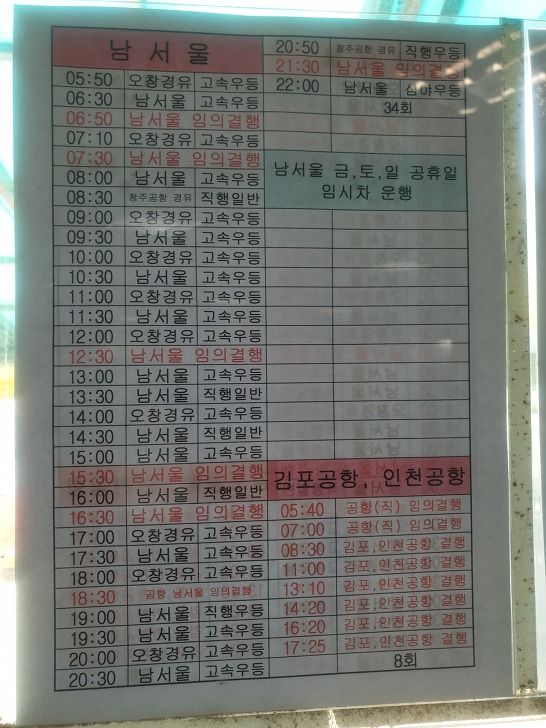 남서울
05:50 오창경유 고속우등
06:30 남서울 고속우등
06:50 남서울 임의결행
07:10 오창경유 고속우등
07:30 남서울 임의결행
08:00 남서울 고속우등
08:30 청주공항 경유 직행일반
09:00 오창경유 고속우등
09:30 남서울 고속우등
10:00 오창경유 고속우등
10:30 남서울 고속우등
11:00 오창경유 고속우등
11:30 남서울 고속우등
12:00 오창경유 고속우등
12:30 남서울 임의결행
13:00 남서울 고속우등
13:30 남서울 직행일반
14:00 오창경유 고속우등
14:30 남서울 직행일반
15:00 남서울 고속우등
15:30 남서울 임의결행
16:00 남서울 직행일반
16:30 남서울 임의결행
17:00 오창경유 고속우등
17:30 남서울 고속우등
18:00 오창경유 고속우등
18:30 공항 남서울 임의결행
19:00 남서울 직행우등
19:30 남서울 고속우등
20:00 오창경유 고속우등
20:30 남서울 고속우등
20:50 청주공항 경유 직행우등
21:30 남서울 임의결행
22:00 남서울 심야우등
34회
남서울 금,토,일 공휴일
임시차 운행
김포공항, 인천공항
05:40 공항(직) 임의결행
07:00 공항(직) 임의결행
08:30 김포,인천공항 결행
11:00 김포,인천공항 결행
13:10 김포,인천공항 결행
14:20 김포,인천공항 결행
16:20 김포,인천공항 결행
17:25 김포,인천공항 결행
8회